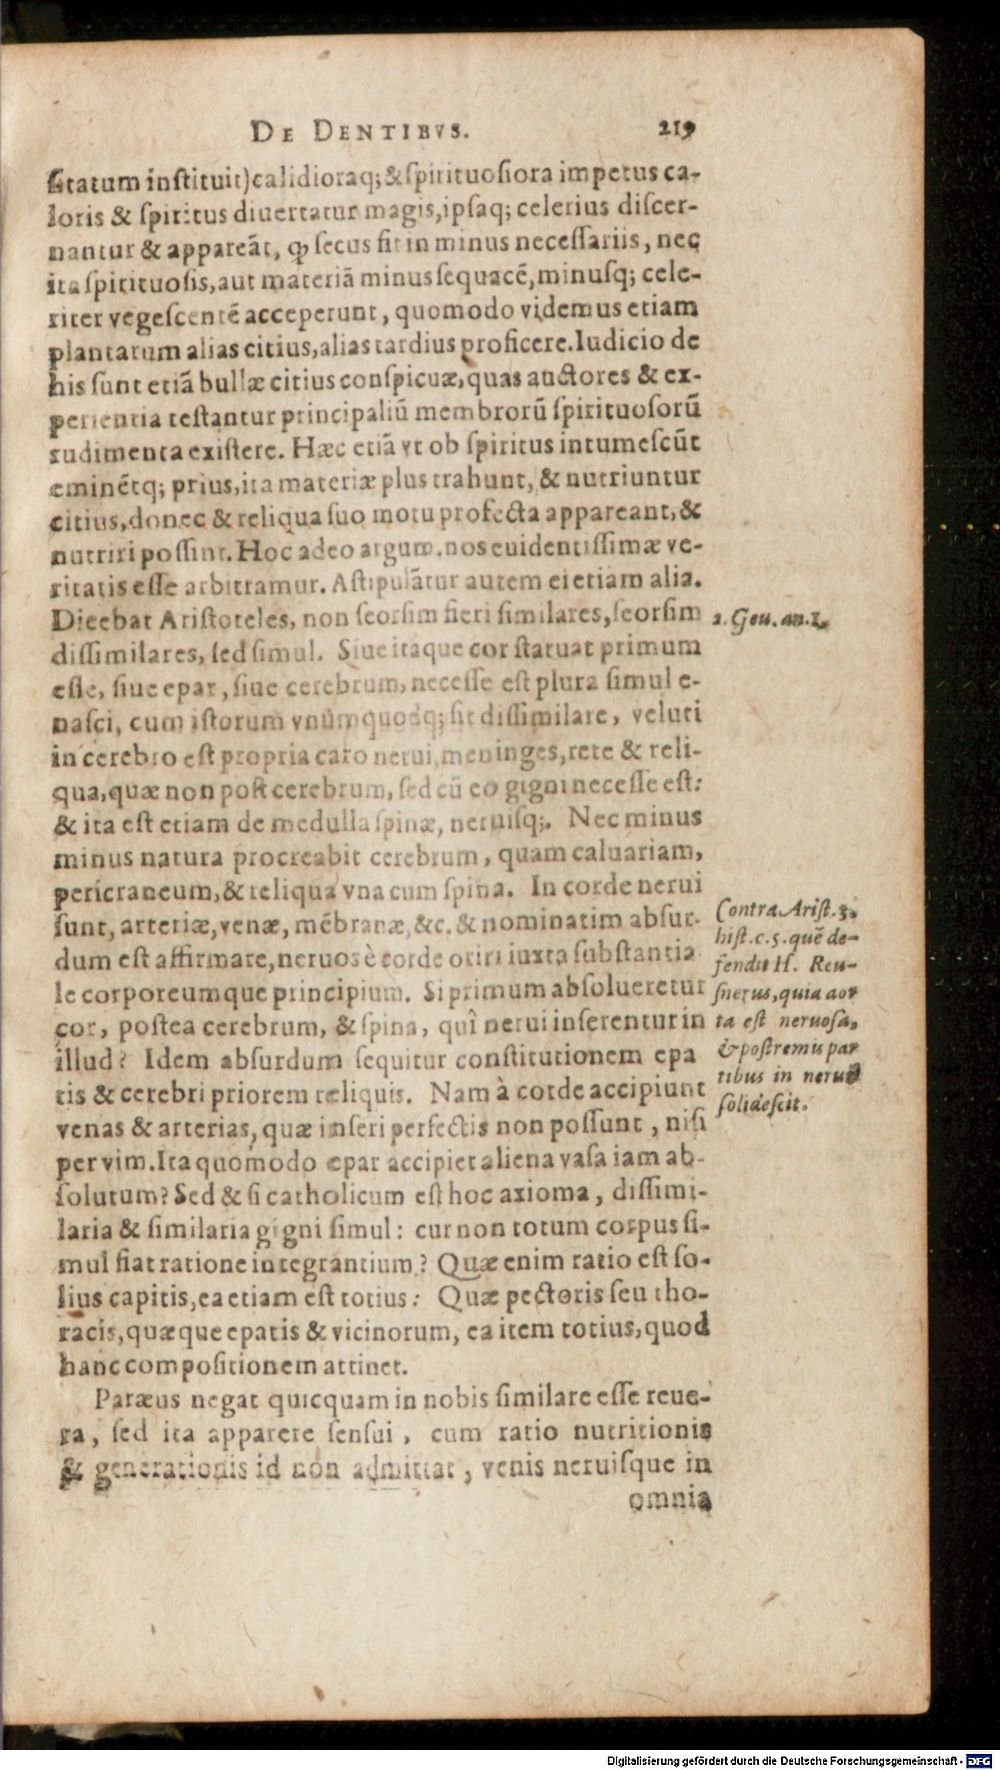 DE DENTIBVS. 219
ſitatum inſtituit)calidioraq;&ſpirituoſiora impetus ca-
loris & ſpiritus diuertatur magis,ipſaq; celerius diſcer-
nantur & appareãt, ꝙ ſecus fit in minus neceſſariis, nec
ita ſpirituoſis,aut materiã minus ſequacẽ,minuſq; cele-
riter vegeſcentẽ acceperunt, quomodo videmus etiam
plantarum alias citius,alias tardius proficere.Iudicio de
his ſunt etiã bullæ citius conſpicuæ,quas auctores & ex-
perientia teſtantur principaliũ membrorũ ſpirituoſorũ
rudimenta exiſtere. Hæc etiã vt ob ſpiritus intumeſcũt
eminẽtq; prius,ita materiæ plus trahunt, & nutriuntur
citius,donec & reliqua ſuo motu profecta appareant,&
nutriri poſſint. Hoc adeo argum. nos euidentiſſimæ ve-
ritatis eſſe arbitramur. Aſtipulãtur autem ei etiam alia.
Dicebat Ariſtoteles, non ſeorſim fieri ſimilares,ſeorſim
2. Gen. an.1.
diſſimilares, ſed ſimul. Siue itaque cor ſtatuat primum
eſſe, ſiue epar, ſiue cerebrum, neceſſe eſt plura ſimul e-
naſci, cum iſtorum vnumquodq; ſit diſſimilare, veluti
in cerebro eſt propria caro nerui, meninges,rete & reli-
qua,quæ non poſt cerebrum, ſed cũ eo gigni neceſſe eſt:
& ita eſt etiam de medulla ſpinæ, neruiſq;. Nec minus
minus natura procreabit cerebrum, quam caluariam,
pericraneum,& reliqua vna cum ſpina. In corde nerui
ſunt, arteriæ,venæ, mẽbranæ,&c. & nominatim abſur-
dum eſt affirmare,neruos è corde oriri iuxta ſubſtantia
le corporeumque principium. Si primum abſolueretur
cor, poſtea cerebrum, & ſpina, quî nerui inſerentur in
illud? Idem abſurdum ſequitur conſtitutionem epa
tis & cerebri priorem reliquis. Nam à corde accipiunt
Contra Ariſt. 3.
hiſt. c. 5. quẽ de-
fendit H. Reu-
ſnerus, quia aor
ta eſt neruoſa,
& poſtremis par
tibus in neruũ
ſolideſcit.
venas & arterias, quæ inſeri perfectis non poſſunt, niſi
per vim.Ita quomodo epar accipiet aliena vaſa iam ab-
ſolutum? Sed & ſi catholicum eſt hoc axioma, diſſimi-
laria & ſimilaria gigni ſimul: cur non totum corpus ſi-
mul fiat ratione integrantium? Quæ enim ratio eſt ſo-
lius capitis,ea etiam eſt totius: Quæ pectoris ſeu tho-
racis,quæque epatis & vicinorum, ea item totius,quod
hanc compoſitionem attinet.
Paræus negat quicquam in nobis ſimilare eſſe reue-
ra, ſed ita apparere ſenſui, cum ratio nutritionis
& generationis id non admittat, venis neruiſque in
omnia
Digitalisierung gefördert durch die Deutsche Forschungsgemeinschaft - DFG